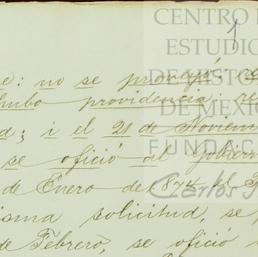 CENTRO
ESTUDIO
DE HISTO
DE MEXIC
FUNDAC
Carlos
1
e: no se
hubo providencia; re
d; i el 21 de Noviem
se ofició al gobern
de Enero de 1874 el
isma solicitud, se
de Febrero, se ofició